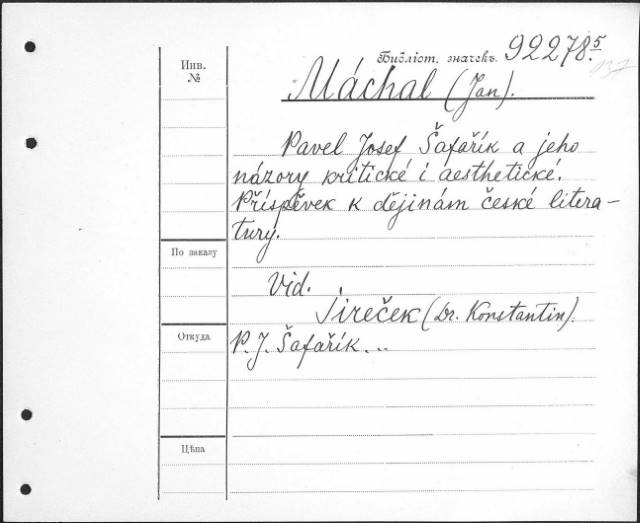 Библіот. значекъ. 92278.5
137
Инв.
№
Máchal (Jan).
Pavel Josef Šafařík a jeho
názory kritické i aesthetické.
Příspěvek k dějinám české litera-
tury.
По заказу
Vid.
Jireček (Dr. Konstantin).
Откуда
P. J. Šafařík...
Цѣна